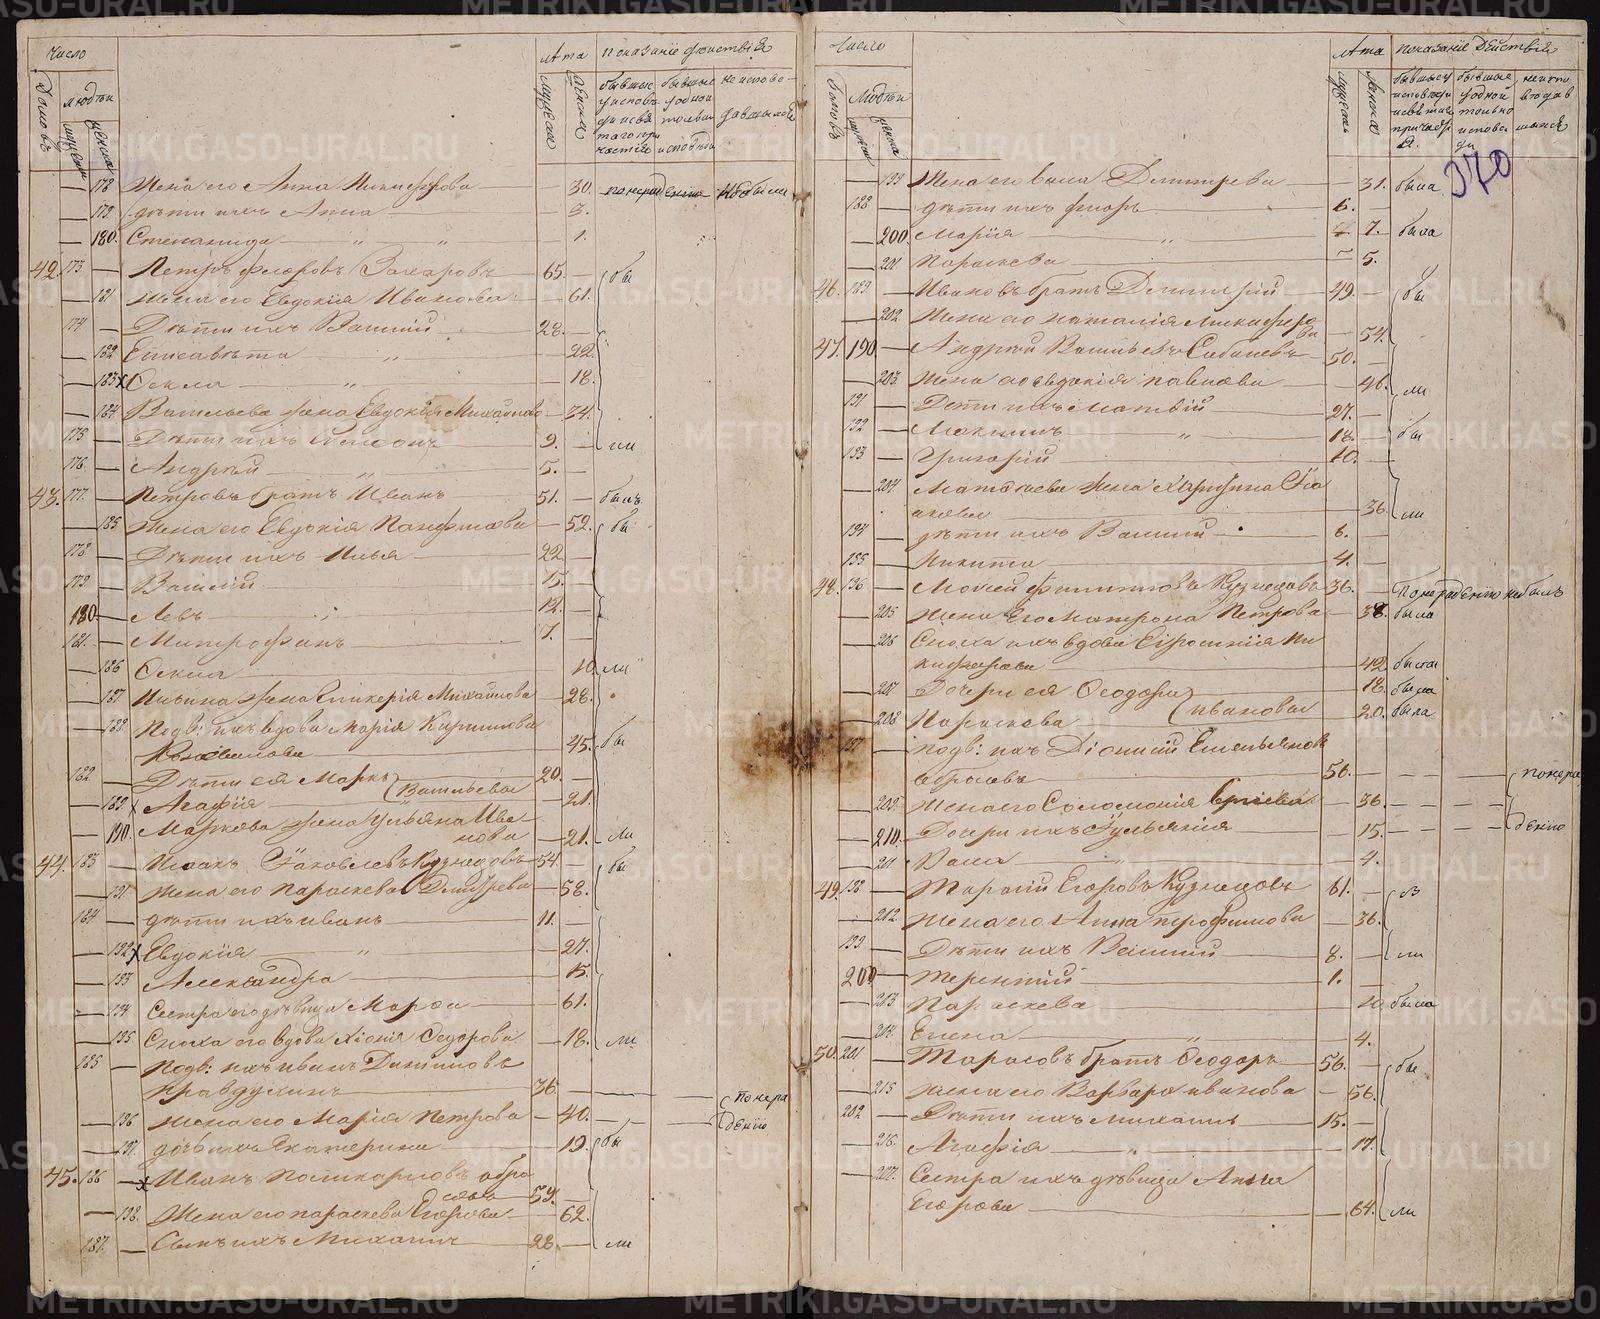 Число
Лѣта
Показаніе дѣйствія
Домовъ
людей
мужеска
женска
мужеска
женска
бывшые
у исповѣ
ди и св.
таго при
частія
бывшые
у одной
только
исповѣди
не исповѣ-
давшыхся
178 Жена его Анна Никифорова 30. по нерадѣнію не были
179 дѣти ихъ Анна 3.
180. Степанида „ „ 1.
42. 173. Петръ Федоровъ Захаровъ 65. бы
181 Жена его Евдокія Иванова 61.
174 Дѣти ихъ Василій 28.
182 Елисавета „ 22.
183 x Фекла „ 18.
184 Васильева жена Евдокія Михайлова 34.
175 Дѣти ихъ 9. ли
176. Андрей „ 5.
43. 177. Петровъ братъ Иванъ 51. былъ
185 Жена его Евдокія Панфилова 52. бы
178. Дѣти ихъ Илья 22
179. Василій 15.
180 Левъ 12.
181. Митрофанъ 7.
186 Фекла 10. ли
187 Ильина жена Гликерія Михайлова 28.
188 Подв: ихъ вдова Марія Кирилова
45. бы
182 Дѣти ея Маркъ 20.
Васильевы
189. x Агафія 21.
190. Маркова жена Ульяна Ива
нова 21. ли
44. 183 Исаакъ Яковлевъ Кузнецовъ 54. бы
191 Жена его Параскева Дмитрева 58.
184 дѣти ихъ Иванъ 11.
192 x Евдокія „ 27.
193 Александра 15.
194 Сестра его дѣвица Марфа 61.
195 Сноха его вдова Хіонія Федорова 18. ли
185 Подв: ихъ Иванъ Даниловъ
36. по нера
196 Жена его Марія Петрова 40. дѣнію
197. дочь ихъ Екатерина 19. бы
45. 186 x Иванъ Поликарповъ Абра
59.
198. Жена его Параскева Егорова 62.
187. Сынъ ихъ Михаилъ 28. ли
Число
Лѣта
Показаніе дѣйствія
Домовъ
Людей
женска
женска
370
199 Жена его Васса Димитрева 31. была
188 дѣти ихъ Флоръ 6.
200. Марія „ 7. была
201 Параскева 5.
46. 189 Ивановъ братъ Димитрій 49. бы
202 Жена его Наталія Никифоро
ва 54.
47. 190 Андрей Васильевъ 50.
203. Жена его Евдокія Павлова 46. ли
191 Дѣти ихъ Матвій 27.
192 Максимъ „ 18. бы
193 Григорій 10.
204 Матвѣева жена Харитина Яко
влева 36. ли
194 дѣти ихъ Василій 6.
195 Никита 4.
48. 196 Мокей Филиповъ Кузнецовъ 36. по нерадѣнію не былъ
205 Жена его Матрона Петрова 38. была
206 Сноха ихъ вдова Ефросинія Ни
кифорова 42 была
207 Дочери ея Феодора 18. была
Ивановы
208 Параскева 20. была
197 Подв: ихъ Діонисій Емельяновъ
56. по нера
209 Жена его Соломонія 36.
210. Дочери ихъ Іульянія 15. дѣнію
211 Васса 4.
49. 198 Тарасій Егоровъ Кузнецовъ 61.
212 Жена его Анна Трофимова 36.
199. Дѣти ихъ Василій 8. ли
200 Терентій 1.
213 Параскева 10. была
214 Елена „ 4.
50. 201 Тарасовъ братъ Феодоръ 56. бы
215 Жена его Варвара Иванова 56.
202 Дѣти ихъ Михаилъ 15.
216. Агафія „ 17.
217. Сестра ихъ дѣвица Анна
Егорова 64. ли
METRIKI.GASO-URAL.RU